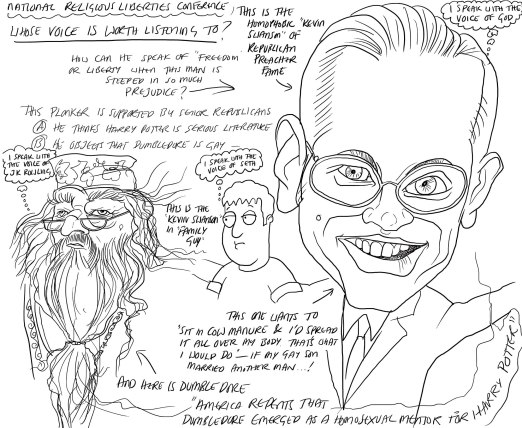 NATIONAL RELIGIOUS LIBERTIES CONFERENCE,
WHOSE VOICE IS WORTH LISTENING TO?
HOW CAN HE SPEAK OF "FREEDOM
OR LIBERTY WHEN THIS MAN IS
STEEPED IN SO MUCH
PREJUDICE?
THIS IS THE
HOMOPHOBIC 'KEVIN
SWANSON' OF
REPUBLICAN
PREACHER
FAME
I SPEAK WITH THE
VOICE OF GOD
THIS PLONKER IS SUPPORTED BY SENIOR REPUBLICANS
A HE THINKS HARRY POTTER IS SERIOUS LITERATURE
B HE OBJECTS THAT DUMBLEDORE IS GAY
I SPEAK WITH
THE VOICE OF
JK ROWLING
I SPEAK WITH THE
VOICE OF SETH
THIS IS THE
'KEVIN SWANSON'
IN 'FAMILY
GUY'
THIS ONE WANTS TO
'SIT IN COW MANURE & I'D SPREAD
IT ALL OVER MY BODY THAT'S WHAT
I WOULD DO' – IF MY GAY SON
MARRIED ANOTHER MAN...!
AND HERE IS DUMBLEDORE
"AMERICA REPENTS THAT
DUMBLEDORE EMERGED AS A HOMOSEXUAL MENTOR FOR HARRY POTTER"